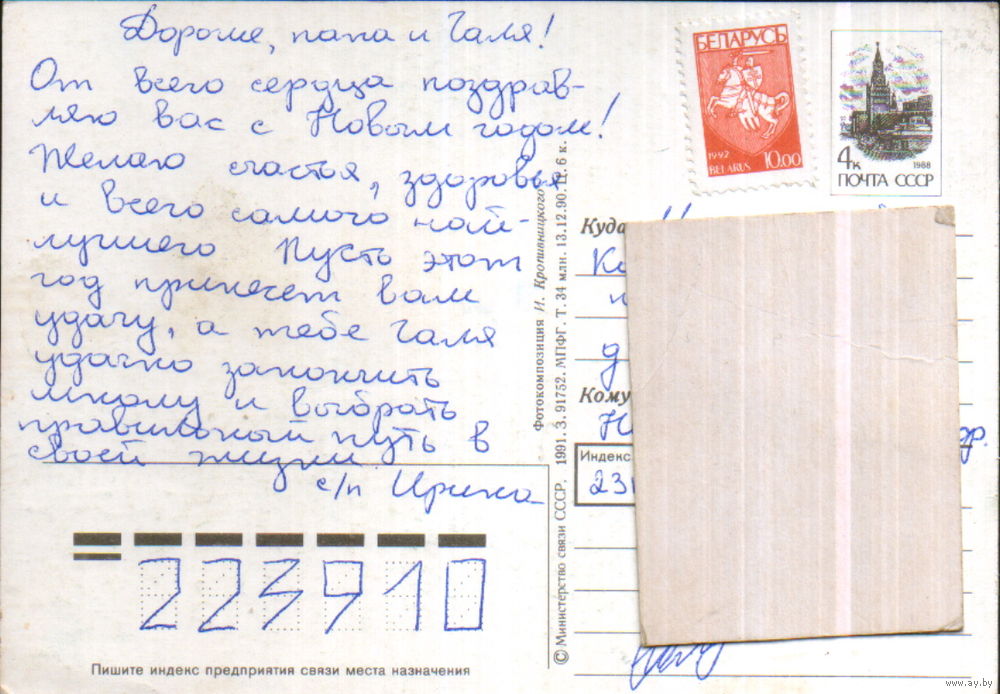 Дорогие, папа и Галя!
От всего сердца поздрав-
ляю вас с Новым годом!
Желаю счастья, здоровья
и всего самого най-
лучшего Пусть этот
год принесет вам
удачу, а тебе Галя
удачно закончить
школу и выбрать
правильный путь в
своей жизни
с/п Ирина
223910
Пишите индекс предприятия связи места назначения
© Министерство связи СССР, 1991. З. 91752. МПФГ. Т. 34 млн. 13.12.90. Ц. 6 к.
Фотокомпозиция И. Кропивницкого
БЕЛАРУСЬ
1992
BELARUS 10.00
4к
1988
ПОЧТА СССР
Куда
Кому
Индекс
23
www.ay.by